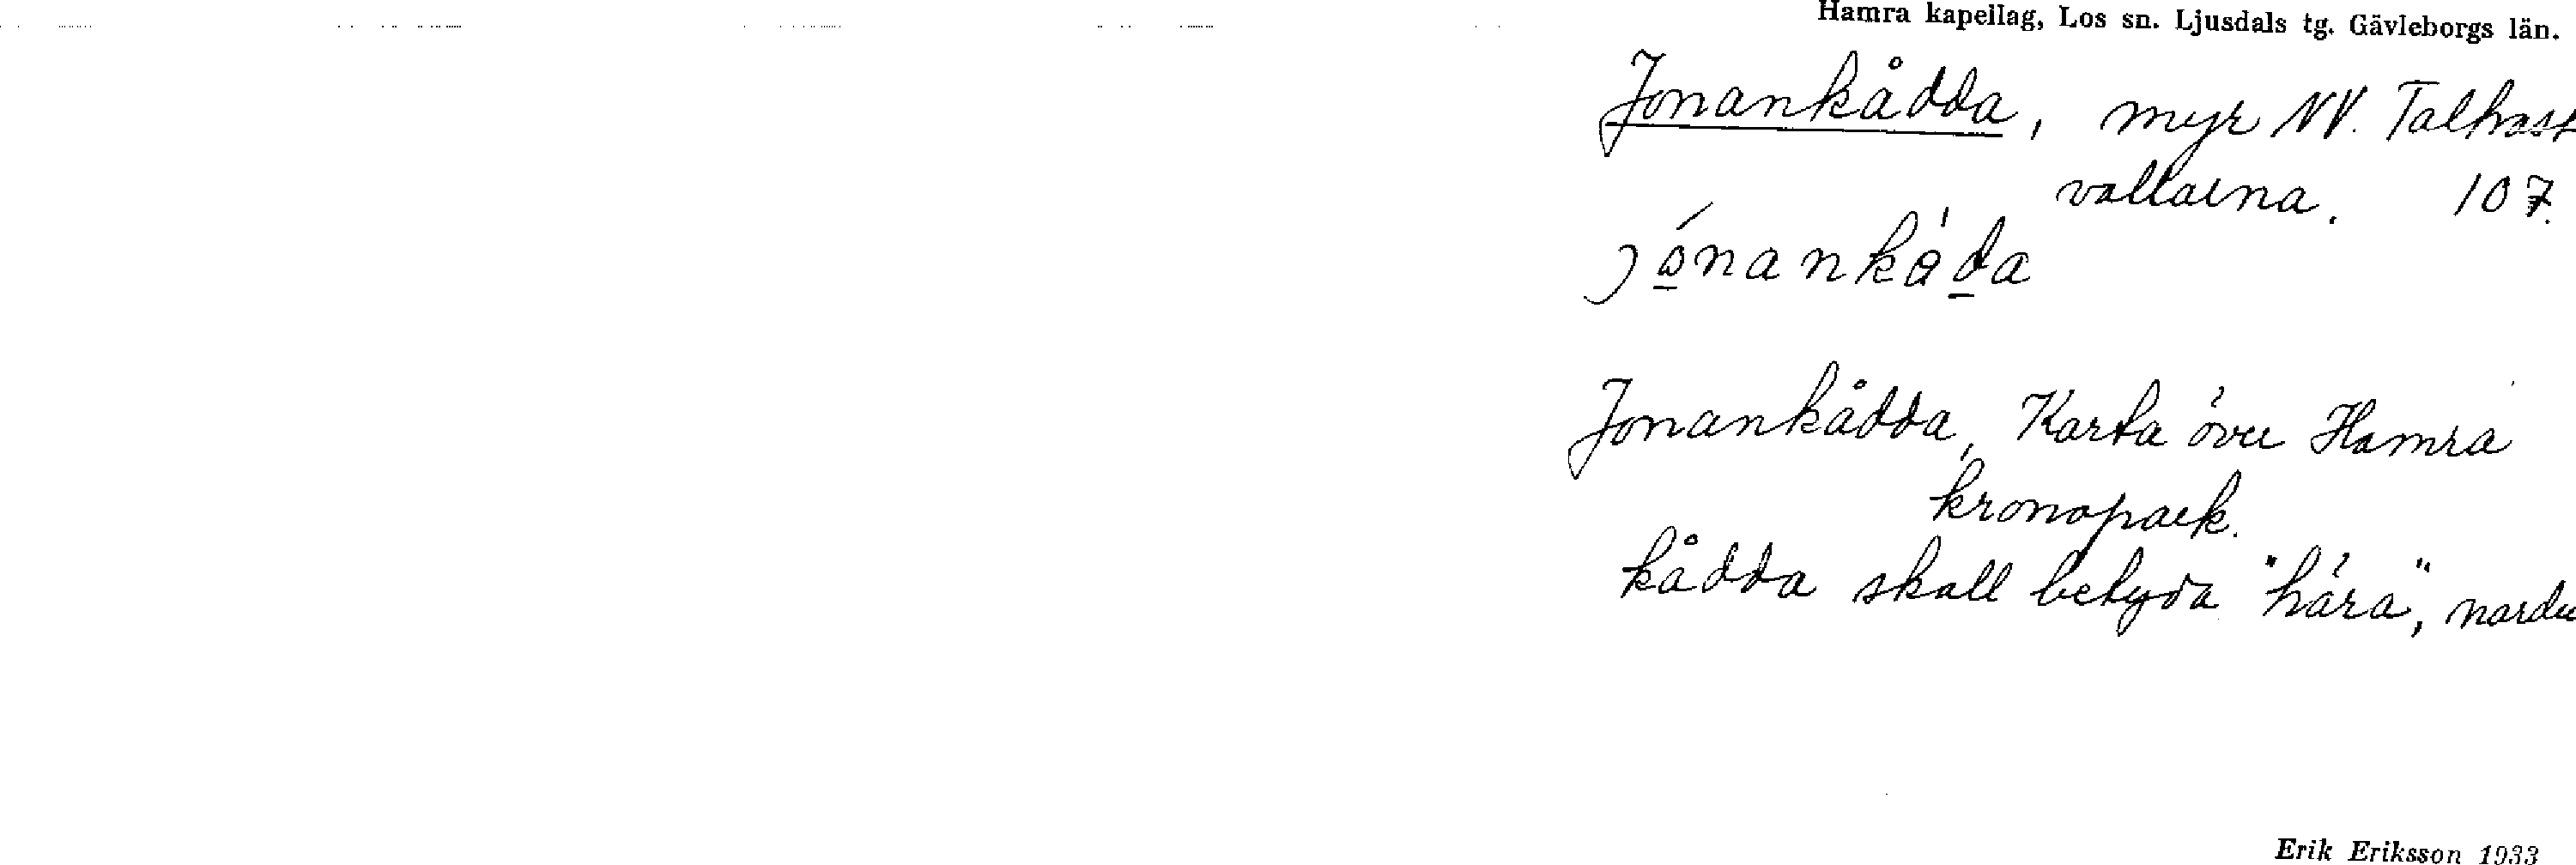 Hamra kapellag, Los sn. Ljusdals tg. Gävleborgs län.
Jonankådda, myr NV. Talhast
vallarna. 107.
Jonankådda, Karta över Hamra
kronopark.
kådda skall betyda "hårå",
Erik Eriksson 1933